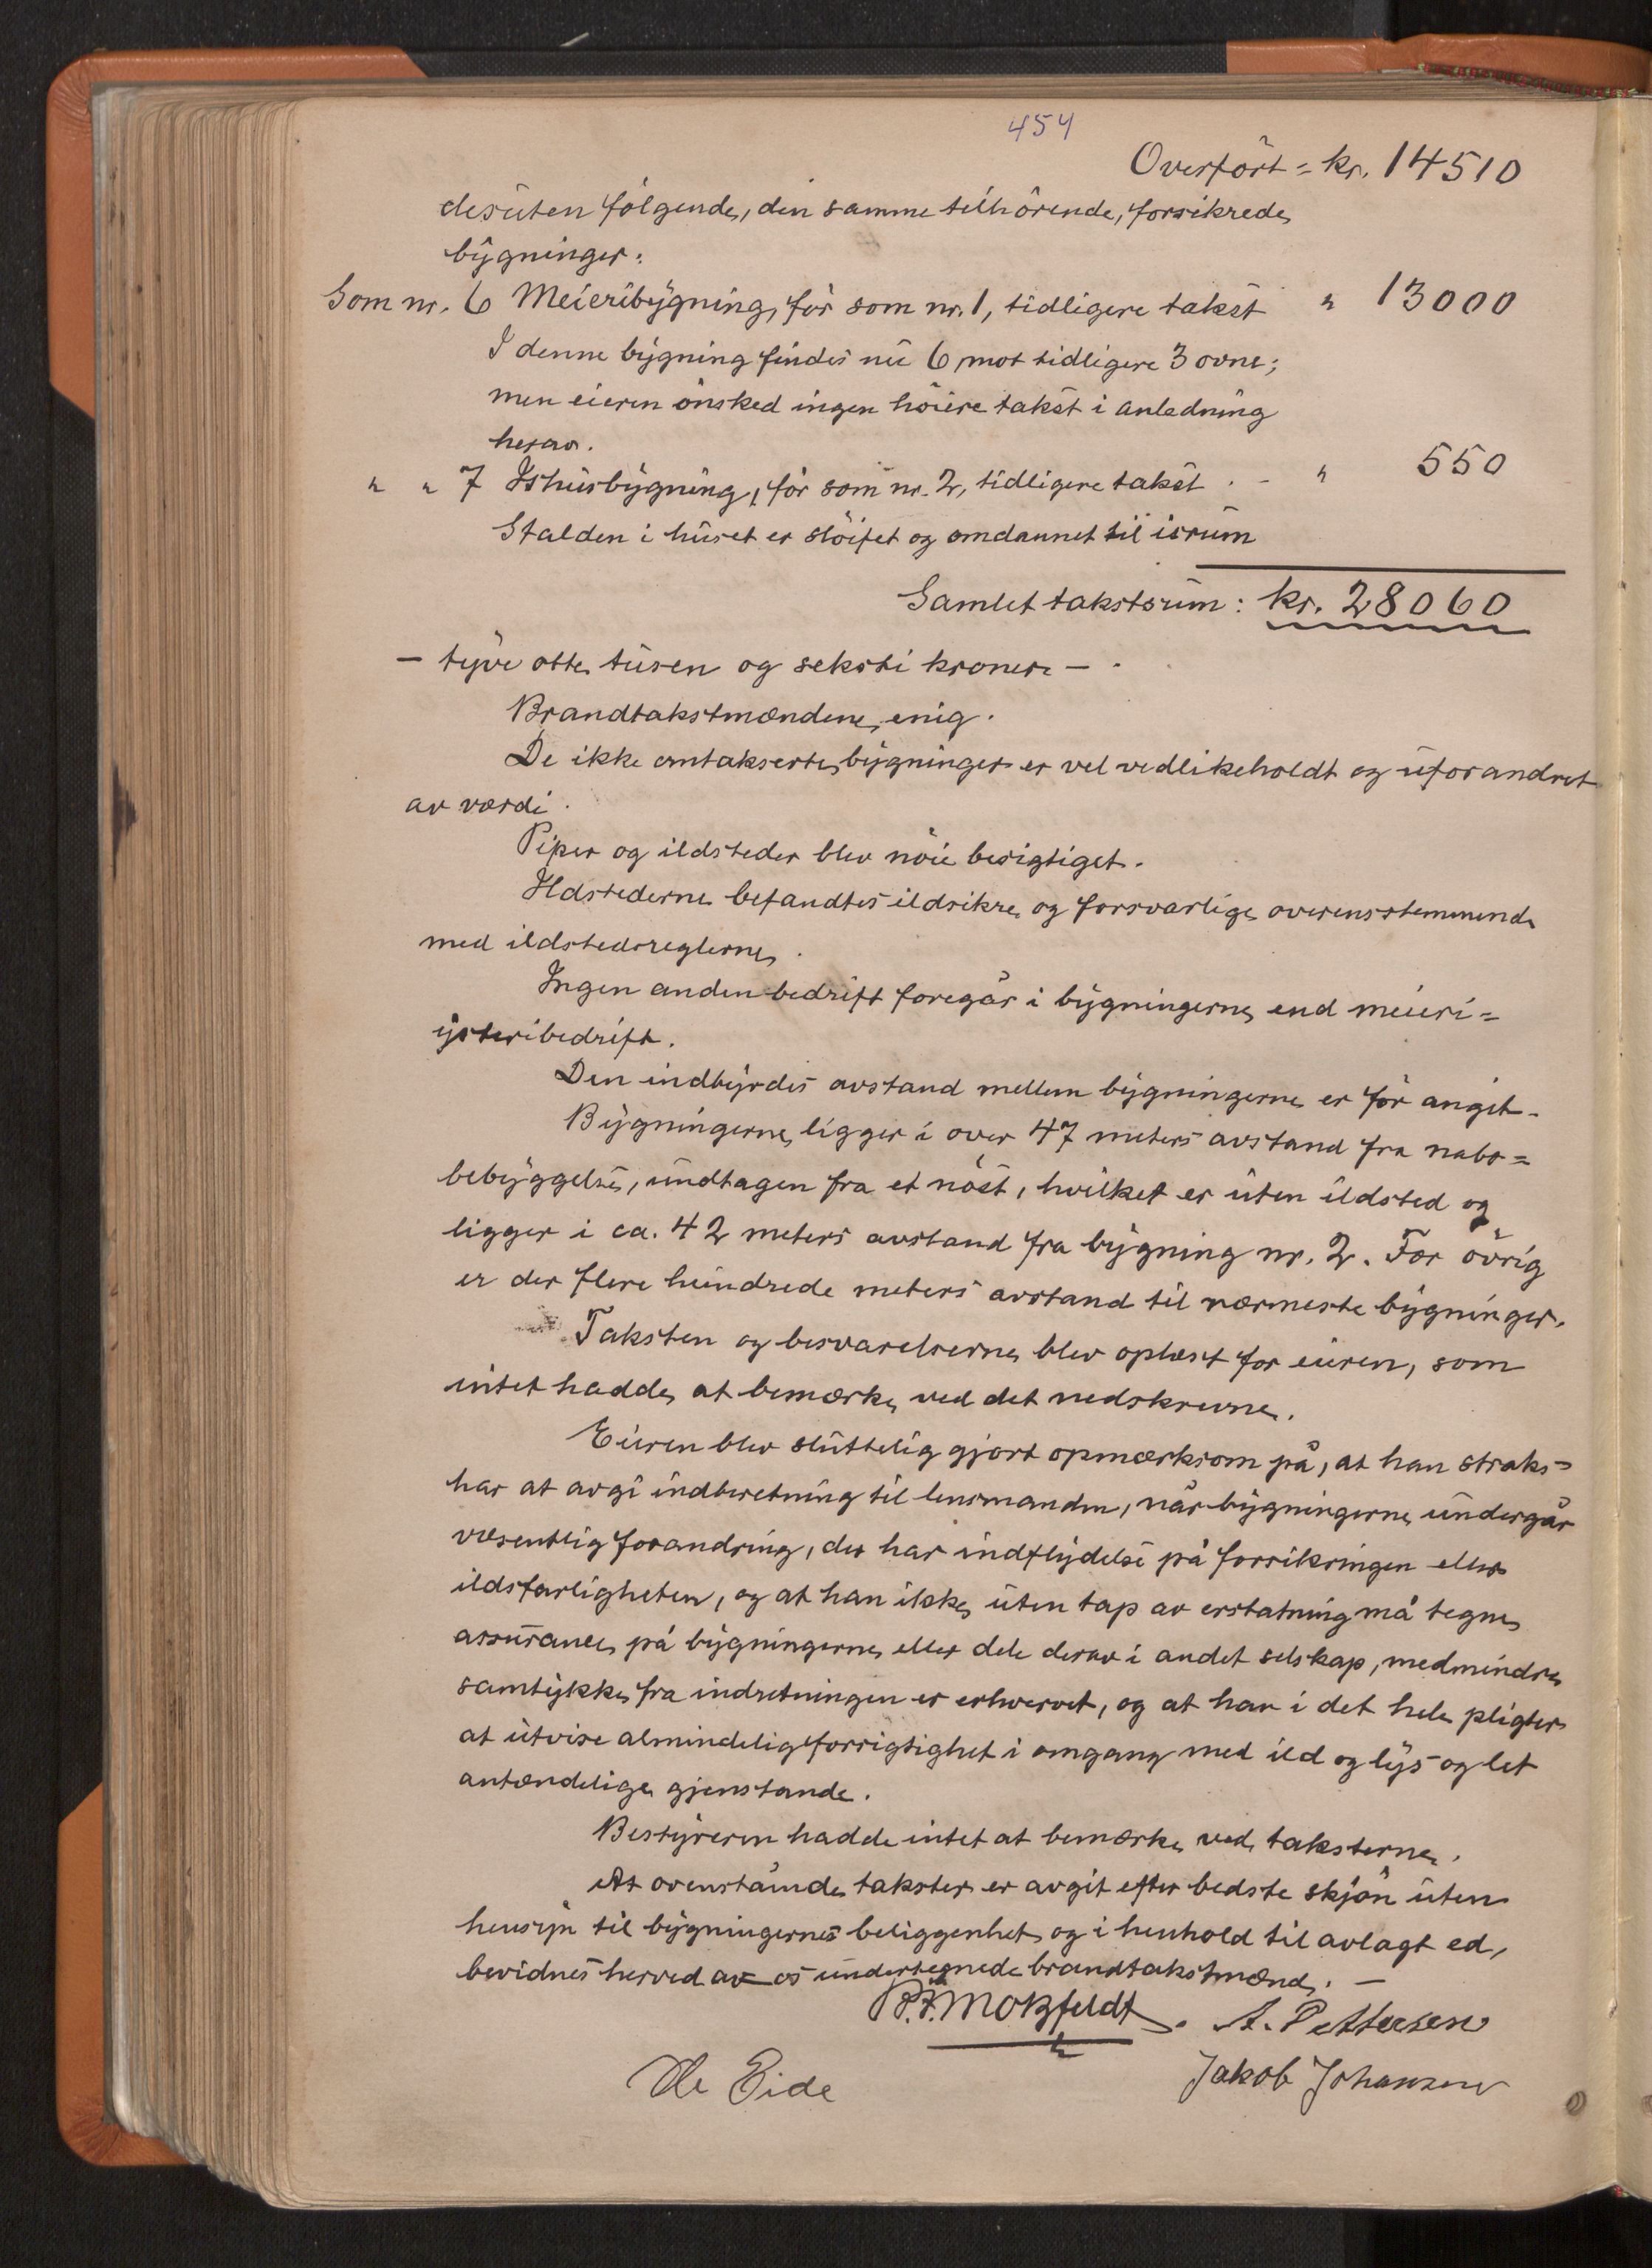 454
Overført = kr. 14510
desuten følgende, den samme tilhørende, forsikrede
bygninger:
Som nr. 6 Meieribygning, før som nr. 1, tidligere takst " 13000
I denne bygning findes nu 6 mot tidligere 3 ovne;
men eieren ønsked ingen høiere takst i anledning
herav.
" " 7 Ishusbygning, før som nr. 2, tidligere takst . - " 550
Stalden i huset er sløifet og omdannet til isrum
Samlet takstsum: kr. 28060
- tyve otte tusen og seksti kroner -.
Brandtakstmændene enig.
De ikke omtakserte bygninger er vel vedlikeholdt og uforandret
av værdi.
Piper og ildsteder blev nøie besigtiget.
Ildstederne befandtes ildsikre og forsvarlige overensstemmende
med ildstedsreglerne.
Ingen anden bedrift foregår i bygningerne end meieri=
ysteribedrift.
Den indbyrdes avstand mellem bygningerne er før angit.
Bygningerne ligger i over 47 meters avstand fra nabo=
bebyggelse, undtagen fra et nøst, hvilket er uten ildsted og
ligger i ca. 42 meters avstand fra bygning nr. 2. For øvrig
er der flere hundrede meters avstand til nærmeste bygninger.
Taksten og besvarelserne blev oplæst for eieren, som
intet hadde at bemærke ved det nedskrevne.
Eieren blev sluttelig gjort opmærksom på, at han straks
har at avgi indberetning til lensmanden, når bygningerne undergår
væsentlig forandring, der har indflydelse på forsikringen eller
ildsfarligheten, og at han ikke uten tap av erstatning må tegne
assurance på bygningerne eller dele derav i andet selskap, medmindre
samtykke fra indretningen er erhvervet, og at han i det hele pligter
at utvise almindelig forsigtighet i omgang med ild og lys og let
antændelige gjenstande.
Bestyreren hadde intet at bemærke ved taksterne.
At ovenstående takster er avgit efter bedste skjøn uten
hensyn til bygningernes beliggenhet og i henhold til avlagt ed,
bevidnes herved av os undertegnede brandtakstmænd. -
P.F. Motzfeldt. A. Pettersen
Ole Eide Jakob Johansen